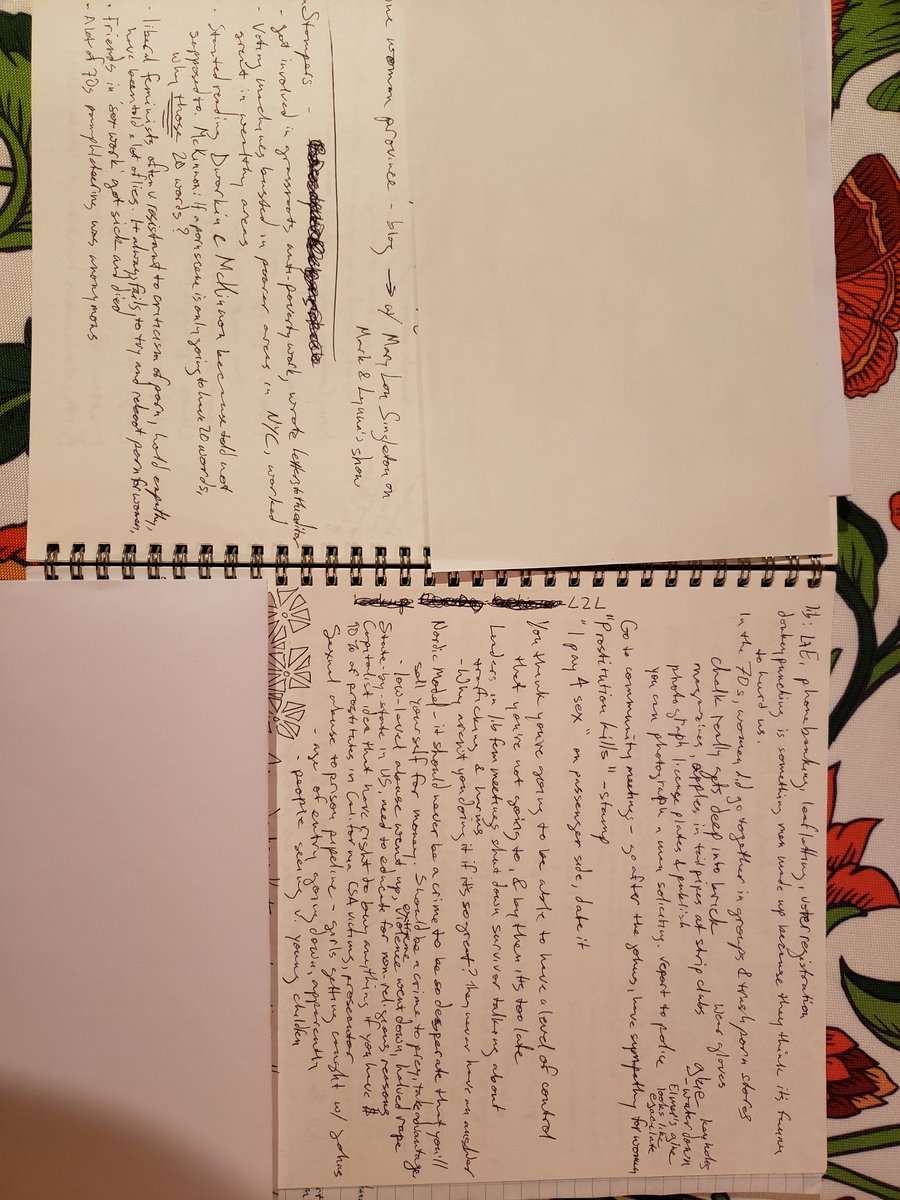 one woman province - blog → w/ Mary Lou Singleton on
Mark & Lynna's show
Stompers -
- got involved in grassroots, anti-poverty work, wrote letters to the editor
- Voting machines busted in poorer areas in NYC, worked
great in wealthy areas
- Started reading Dworkin & McKinnon because told not
supposed to. McKinnon: If a porn scene is only going to have 20 words,
why those 20 words?
- liberal feminists often v resistant to criticism of porn, hold empathy,
have been told a lot of lies. It always fails to try and reboot porn for women,
- Friends in 'sex work' got sick and died
- A lot of 70s pamphleteering was anonymous
L2L
lib: LE, phone banking, leafletting, voter registration
donkey punching is something men made up because they think its funny
to hurt us.
In the 70s, women did go together in groups & trash porn stores
chalk really gets deep into brick
wear gloves
glue keyholes
- water down
Elmer's glue
looks like
ejaculate
magazines apples in tail pipes at strip clubs
photograph license plates & publish
you can photograph a man soliciting, report to police
Go to community meetings - go after the johns, have sympathy for women
"Prostitution kills" - stamp
"I pay 4 sex" on passenger side, date it
You think you're going to be able to have a level of control
that you're not going to, & by then its too late
Leaders in lib fem meetings shut down survivor talking about
trafficking & harms
- Why aren't you doing it if its so great? They never have an answer
Nordic Model - it should never be a crime to be so desperate that you'll
sell yourself for money. Should be a crime to prey, take advantage
- low-level abuse went up, extreme violence went down, halved rape
State-by-state in US, need to educate for non-religious reasons
Capitalist idea that have right to buy anything if you have $
90% of prostitutes in California CSA victims, prosecutor
Sexual abuse to prison pipeline - girls getting caught w/ johns
- age of entry going down, apparently
- people seeing young children